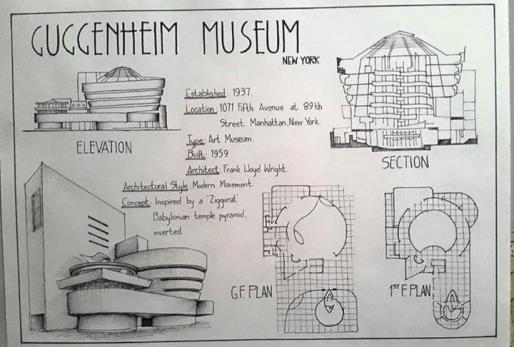 GUGGENHEIM MUSEUM
NEW YORK
Established: 1937.
Location: 1071 Fifth Avenue at 89th
Street. Manhattan, New York.
Type: Art Museum.
Built: 1959
Architect: Frank Lloyd Wright.
Architectural Style: Modern Movement.
Concept: Inspired by a "Ziggurat"
Babylonian temple pyramid,
inverted.
ELEVATION
SECTION
G.F. PLAN
1ST F. PLAN